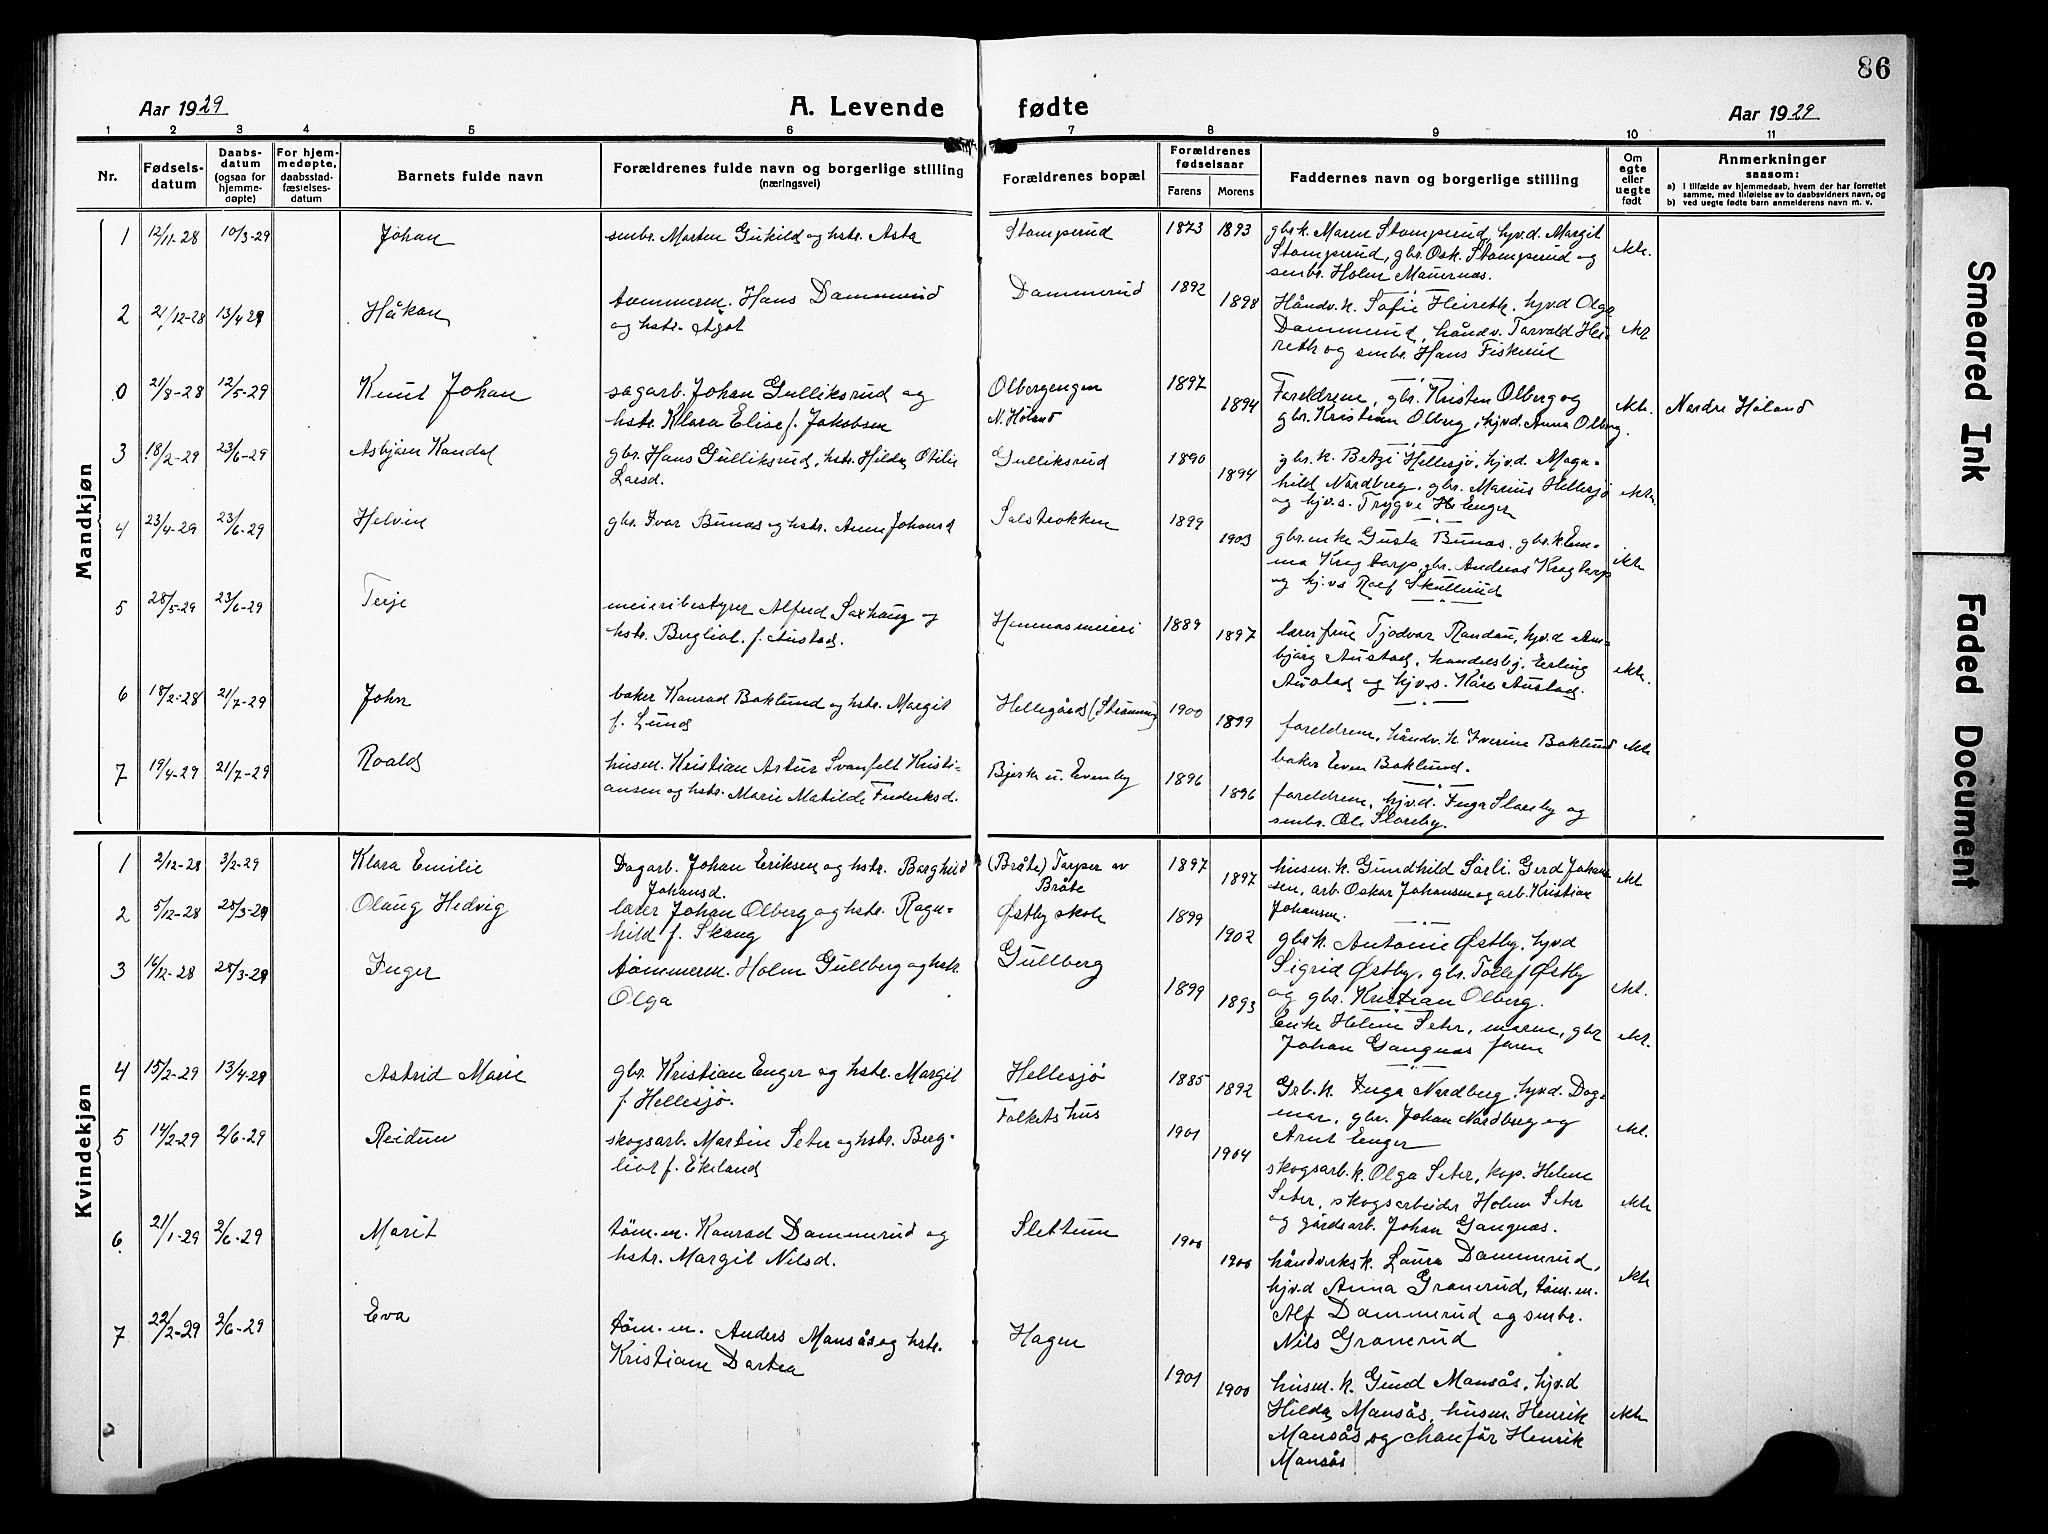 86
Aar 1929
A. Levende fødte
Aar 1929
1 2 3 4 5 6 7 8 9 10 11
Nr.
Fødsels-
datum
Daabs-
datum
(ogsaa for
hjemme-
døpte)
For hjem-
medøpte,
daabsstad-
fæstelses-
datum
Barnets fulde navn
Forældrenes fulde navn og borgerlige stilling
(næringsvei)
Forældrenes bopæl
Forældrenes
fødselsaar
Farens Morens
Faddernes navn og borgerlige stilling
Om
egte
eller
uegte
født
Anmerkninger
saasom:
a) I tilfælde av hjemmedaab, hvem der har forrettet
samme, med tilføielse av to daabsvidners navn, og
b) ved uegte fødte barn anmelderens navn m. v.
Mandkjøn
1 12/11-28 10/3-29 Johan smbr. Morten Gukild og hstr. Asta Stomperud 1873 1893 gbr.k. Maren Stomperud, hjv.d. Margit
Stomperud, gbr. Osk. Stomperud og
smbr. Holm Mauernas. ekte.
2 21/12-28 13/4-29 Håkon tømmerm. Hans Dammerud Dammerud 1892 1898 Håndv.k. Sofie Heireth, hjv.d Olga
og hstr. Ågot
Dammerud, håndv. Torvald Hei-
reth og smbr. Hans Fiskerud ekt
0 21/8-28 12/5-29 Knut Johan sagarb. Johan Gulliksrud og Olbergengen 1897 1894 Foreldrene, gbr. Kristen Olberg og
hstr. Klara Elise f. Jakobsen N. Høland
gbr. Kristian Olberg, hjv.d. Anna Olberg. ekte. Nordre Høland
3 18/2-29 23/6-29 Asbjørn Kandal gbr. Hans Gulliksrud, hstr. Hilda Otilie Gulliksrud 1890 1894 gbr.k. Betzi Hellesjø, hjv.d. Magn-
Larsd.
hild Nordberg, gbr. Marius Hellesjø
og hjv.s. Trygve Enger ekte
4 23/4-29 23/6-29 Helvin gbr. Ivar Bunes og hstr. Anne Johansd Solstrokken 1899 1903 gbr.enke Gusta Bunes, gbr.k Em-
ma Krogtorp, gbr. Andreas Krogtorp
og hjv.s Rolf Skullerud ekte
5 28/5-29 23/6-29 Terje meieribestyrer Alfred Saxhaug og Hemnesmeieri 1889 1897 lærerfrue Tjodvar Randau, hjv.d Am-
hstr. Bergliot, f. Austad.
bjørg Austad, handelsbj. Erling
Austad og hjv.s. Kåre Austad. ekte.
6 18/2-28 21/7-29 John baker Konrad Boklund og hstr. Margit Hellegårds (Strømmen) 1900 1899 foreldrene, håndv.k Iverine Boklund
f. Lund
baker Even Boklund. ekte
7 19/4-29 21/7-29 Roald husm. Kristian Artur Svanfelt Kristi- Bjerke u. Evenby 1896 1896 foreldrene, hjv.d. Inga Sloreby og
ansen og hstr. Marie Matilde Frederiksd.
smbr. Ole Sloreby.
Kvindekjøn
1 2/12-28 3/2-29 Klara Emilie Dagarb. Johan Eriksen og hstr. Borghild (Bråte) Torper av 1897 1897 husm.k. Gundhild Sørli, Gerd Johan-
Johansd. Bråte
sen, arb. Oskar Johansen og arb. Kristian
Johansen. ekt
2 5/12-28 28/3-29 Olaug Hedvig lærer Johan Olberg og hstr. Ragn- Østby skole 1899 1902 gbr.k. Antonie Østby, hjv.d
hild f. Skaug
Sigrid Østby, gbr. Tollef Østby
og gbr. Kristian Olberg. ekt.
3 14/12-28 28/3-29 Inger tømmerm. Holm Gullberg og hstr. Gullberg 1899 1893
Olga
Enke Helene Seter, moren, gbr
Johan Gangnæs faren ekt.
4 15/2-29 13/4-29 Astrid Marie gbr. Kristian Enger og hstr. Margit Hellesjø 1885 1892 Grb.k. Inga Nordberg, hjv.d. Dag-
f. Hellesjø.
mar, gbr. Johan Nordberg og
Arnt Enger ekt.
5 14/2-29 2/6-29 Reidun skogsarb. Martin Seter og hstr. Berg- Folkets hus 1901 1904
liot f. Ekeland
skogsarb.k. Olga Seter, kop. Helene
Seter, skogsarbeider Holm Seter
og gårdsarb. Johan Gangnæs. ekte
6 21/1-29 2/6-29 Marit tøm.m. Konrad Dammerud og Slettum 1900 1900 håndverksk. Laura Dammerud,
hstr. Margit Nilsd.
hjv.d Anna Granerud, tøm.m.
Alf Dammerud og smbr.
Nils Granerud ekte
7 22/2-29 2/6-29 Eva tøm.m. Anders Mansås og hstr. Hagen 1901 1900
Kristiane Dortea
husm.k. Gund Mansås, hjv.d
Hilda Mansås, husm. Henrik
Mansås og chaufør Henrik
Mansås ekte
Smeared Ink
Faded Document